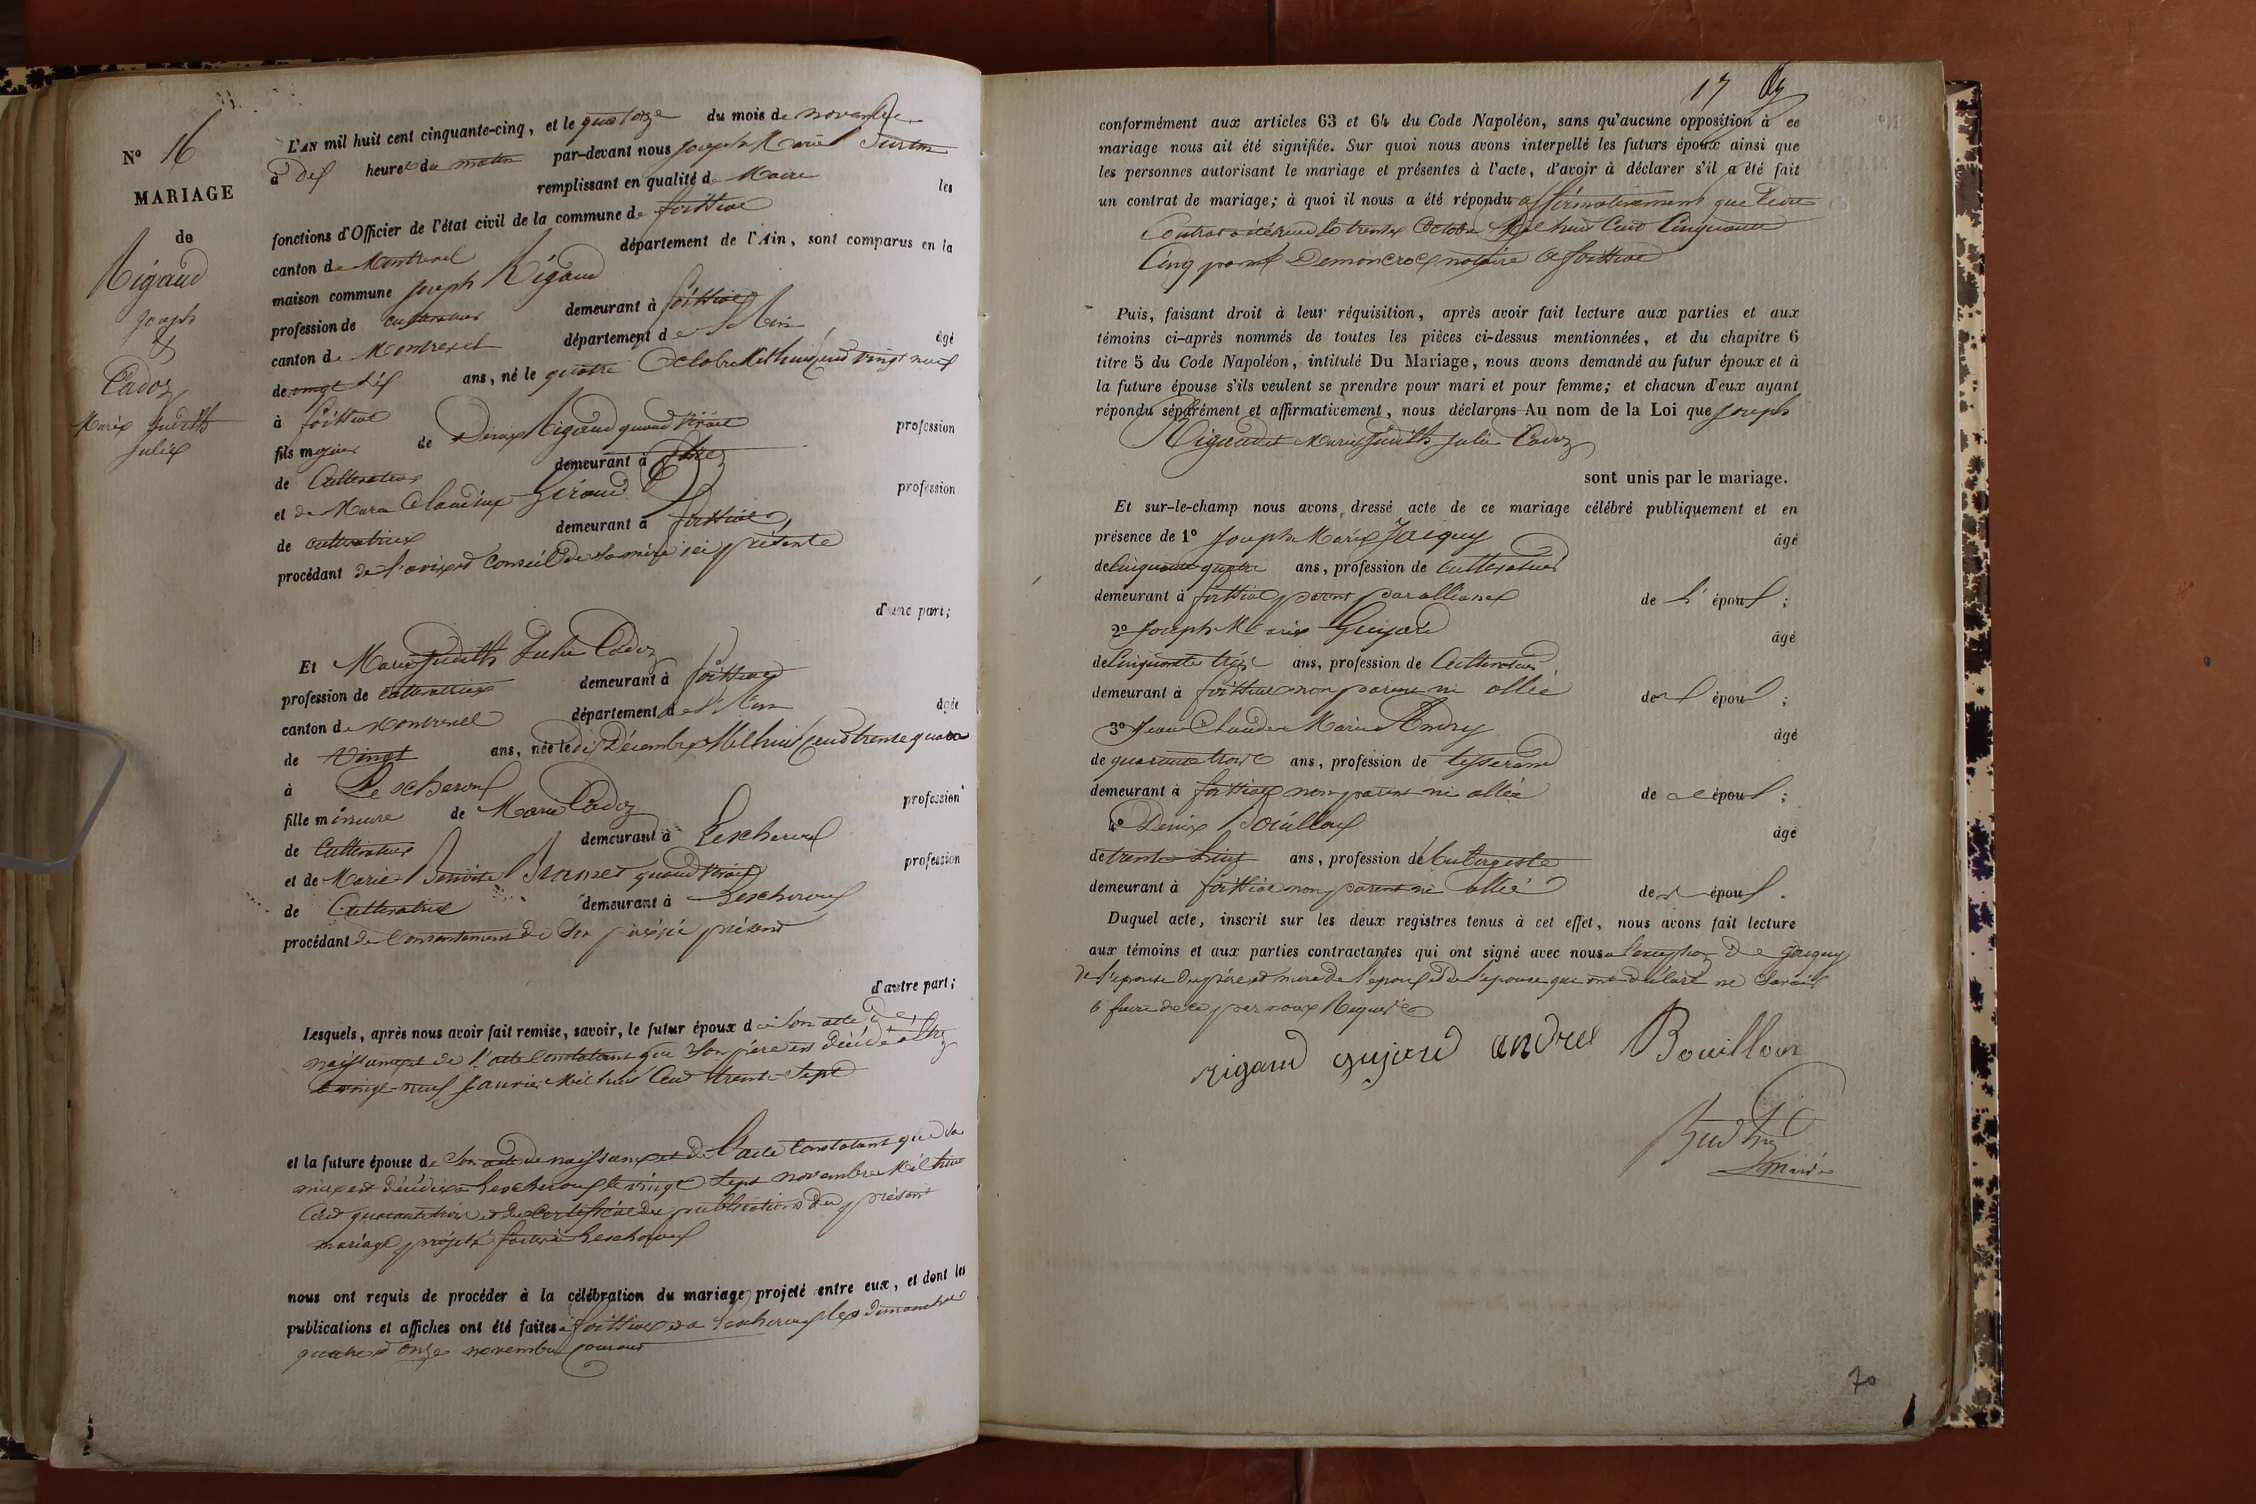 N° 16
MARIAGE
de
Rigaud
Joseph
&
Cadoz
Marie Judith
Julie
L'AN mil huit cent cinquante-cinq, et le quatorze du mois de novembre
à dix heures du matin par-devant nous Joseph Marie
remplissant en qualité de Maire les
fonctions d'Officier de l'état civil de la commune de foissiat
canton de Montrevel département de l'Ain, sont comparus en la
maison commune Joseph Rigaud
profession de cultivateur demeurant à foissiat
canton de Montrevel département de l'Ain âgé
de vingt six ans, né le quatre Octobre Mil huit cent vingt neuf
à foissiat
fils majeur de Denis Rigaud quand vivait profession
de Cultivateur demeurant à
et de Marie Claudine Giraud profession
de cultivatrice demeurant à foissiat
procédant de l'avis et Conseil de sa mère ici présente
d'une part;
Et Marie Judith Julie Cadoz
profession de cultivatrice demeurant à foissiat
canton de Montrevel département de l'Ain âgée
de vingt ans, née le dix Décembre Mil huit cent trente quatre
à Lescheroux
fille mineure de Marie Cadoz profession
de Cultivateur demeurant à Lescheroux
et de Marie Benoite Brunet quand vivait profession
de Cultivatrice demeurant à Lescheroux
procédant du Consentement de son père ici présent
d'autre part;
Lesquels, après nous avoir fait remise, savoir, le futur époux de son acte de
naissance et de l'acte Constatant que son père est décédé à
le vingt-neuf Janvier Mil huit Cent trente-Sept
et la future épouse de son acte de naissance et de l'acte Constatant que sa
mère est décédée à Lescheroux le vingt Sept novembre Mil huit
Cent quarante trois et du Certificat des publications du présent
mariage projeté faites à Lescheroux
nous ont requis de procéder à la célébration du mariage projeté entre eux, et dont les
publications et affiches ont été faites à foissiat et à Lescheroux les dimanches
quatre et onze novembre courant
17
conformément aux articles 63 et 64 du Code Napoléon, sans qu'aucune opposition à ce
mariage nous ait été signifiée. Sur quoi nous avons interpellé les futurs époux ainsi que
les personnes autorisant le mariage et présentes à l'acte, d'avoir à déclarer s'il a été fait
un contrat de mariage; à quoi il nous a été répondu affirmativement que leur
Contrat a été reçu le trente Octobre Mil huit Cent Cinquante
Cinq par Me Demoncroc notaire à foissiat
Puis, faisant droit à leur réquisition, après avoir fait lecture aux parties et aux
témoins ci-après nommés de toutes les pièces ci-dessus mentionnées, et du chapitre 6
titre 5 du Code Napoléon, intitulé Du Mariage, nous avons demandé au futur époux et à
la future épouse s'ils veulent se prendre pour mari et pour femme; et chacun d'eux ayant
répondu séparément et affirmativement, nous déclarons Au nom de la Loi que Joseph
Rigaud et Marie Judith Julie Cadoz
sont unis par le mariage.
Et sur-le-champ nous avons dressé acte de ce mariage célébré publiquement et en
présence de 1° Joseph Marie Jacquy âgé
de Cinquante quatre ans, profession de Cultivateur
demeurant à foissiat parent par alliance de l'époux;
2° Joseph Marie Gujard âgé
de Cinquante trois ans, profession de Cultivateur
demeurant à foissiat non parent ni allié de l'époux;
3° Jean Claude Marie Andry âgé
de quarante trois ans, profession de tisserand
demeurant à foissiat non parent ni allié de époux;
4° Denis Bouilloux âgé
de trente ans, profession de aubergiste
demeurant à foissiat non parent ni allié de époux.
Duquel acte, inscrit sur les deux registres tenus à cet effet, nous avons fait lecture
aux témoins et aux parties contractantes qui ont signé avec nous à l'exception de Jacquy
de l'épouse du père et mère de l'époux et de l'épouse qui ont déclaré ne savoir
le faire de ce par nous Requis
rigaud gujard andre Bouilloux
maire
70